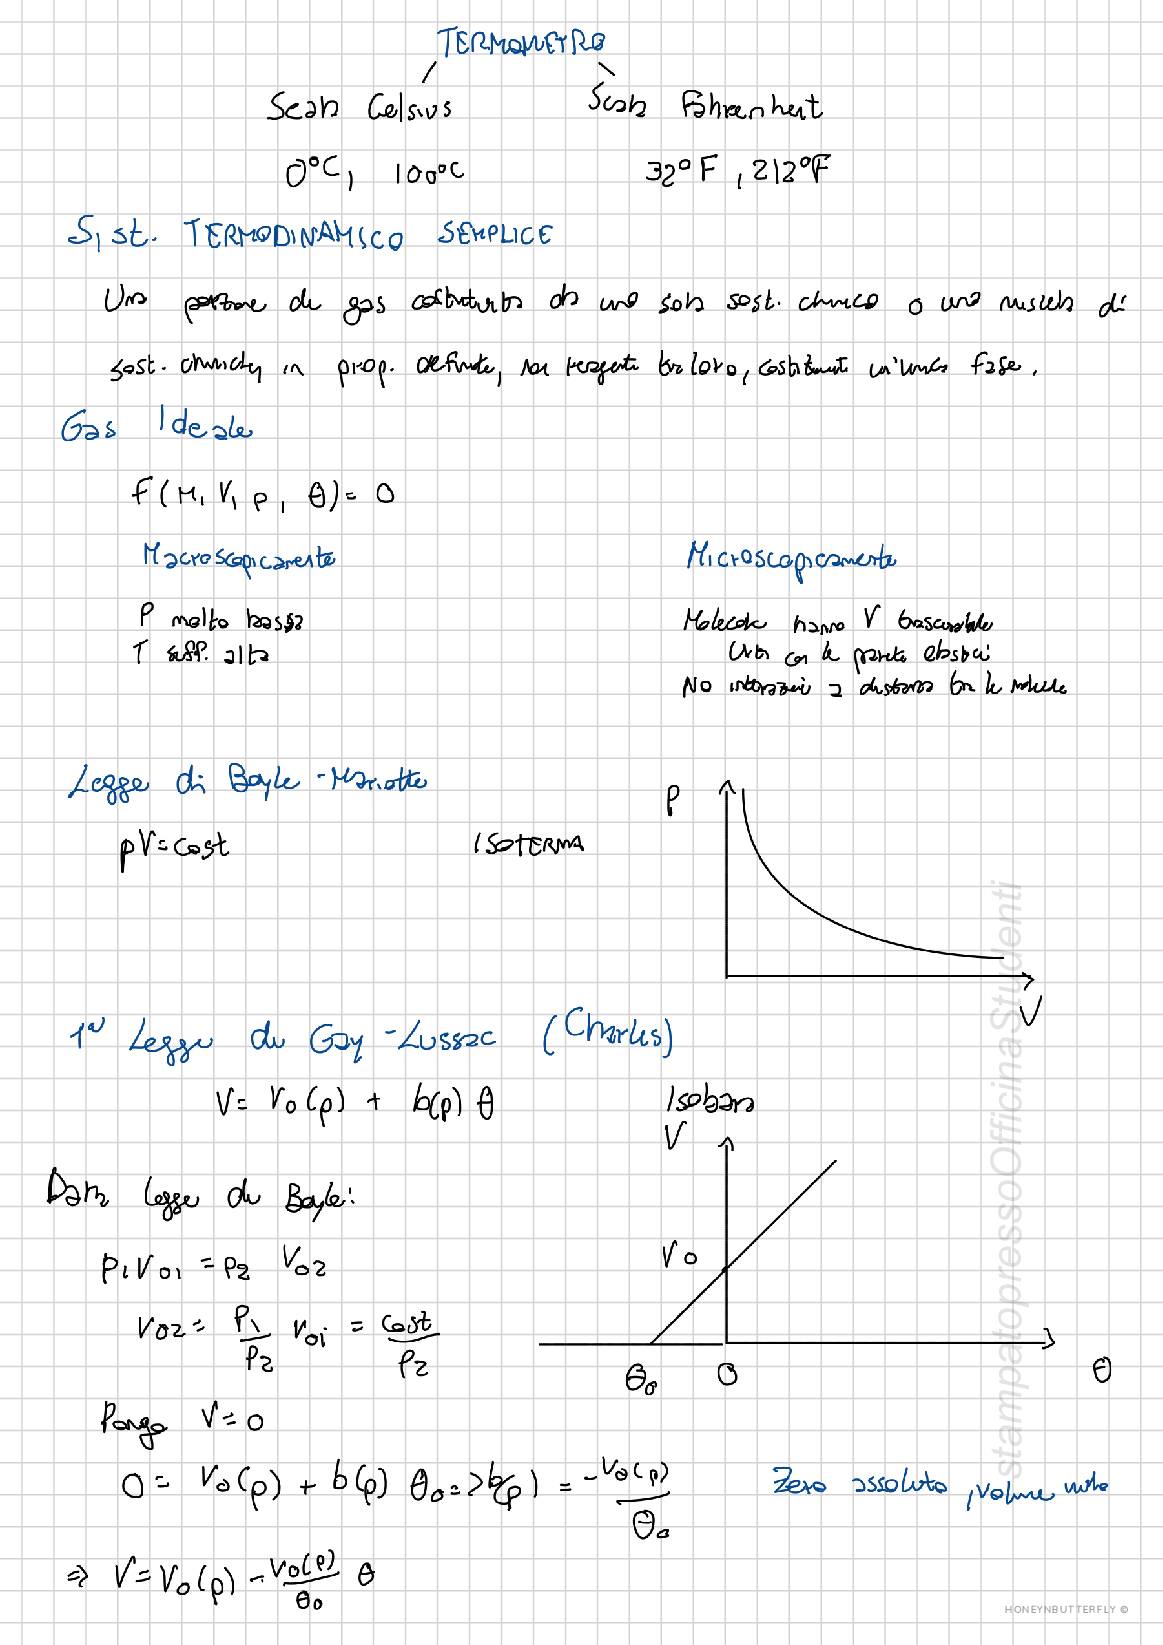 TERMOMETRO
Scala Celsius Scala Fahrenheit
0°C, 100°C 32°F, 212°F
Sist. TERMODINAMICO SEMPLICE
Una porzione di gas costituita da una sola sost. chimica o una miscela di
sost. chimiche, in prop. definite, non reagenti tra loro, costituenti un'unica fase.
Gas Ideale
f(M, V, p, θ)= 0
Macroscopicamente Microscopicamente
P molto bassa Molecole hanno V trascurabile
T suff. alta Urti con le pareti elastici
No interazioni a distanza tra le molecole
Legge di Boyle-Mariotte
P
pV=cost ISOTERMA
V
1ª Legge di Gay-Lussac (Charles)
V= V0(p) + b(p) θ Isobara
V
Dalla legge di Boyle:
V0
p1V01 = p2 V02
V02 = P1/P2 V01 = cost/P2
θ0 0 θ
Pongo V=0
0= V0(p) + b(p) θ0 => b(p) = -V0(p)/θ0 Zero assoluto, volume nullo
=> V=V0(p) - V0(p)/θ0 θ
stampatopressoOfficinaStudenti
HONEYNBUTTERFLY ©